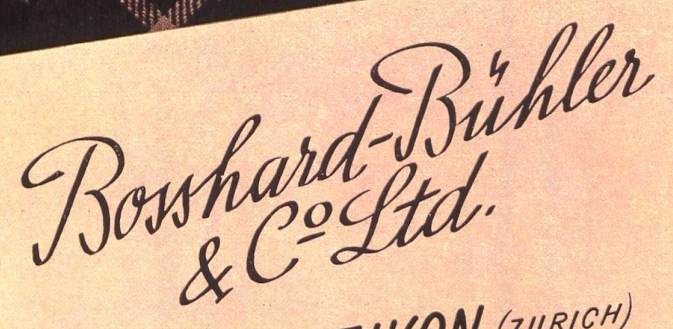 Bosshard-Bühler
& Cº Ltd.
(ZURICH)